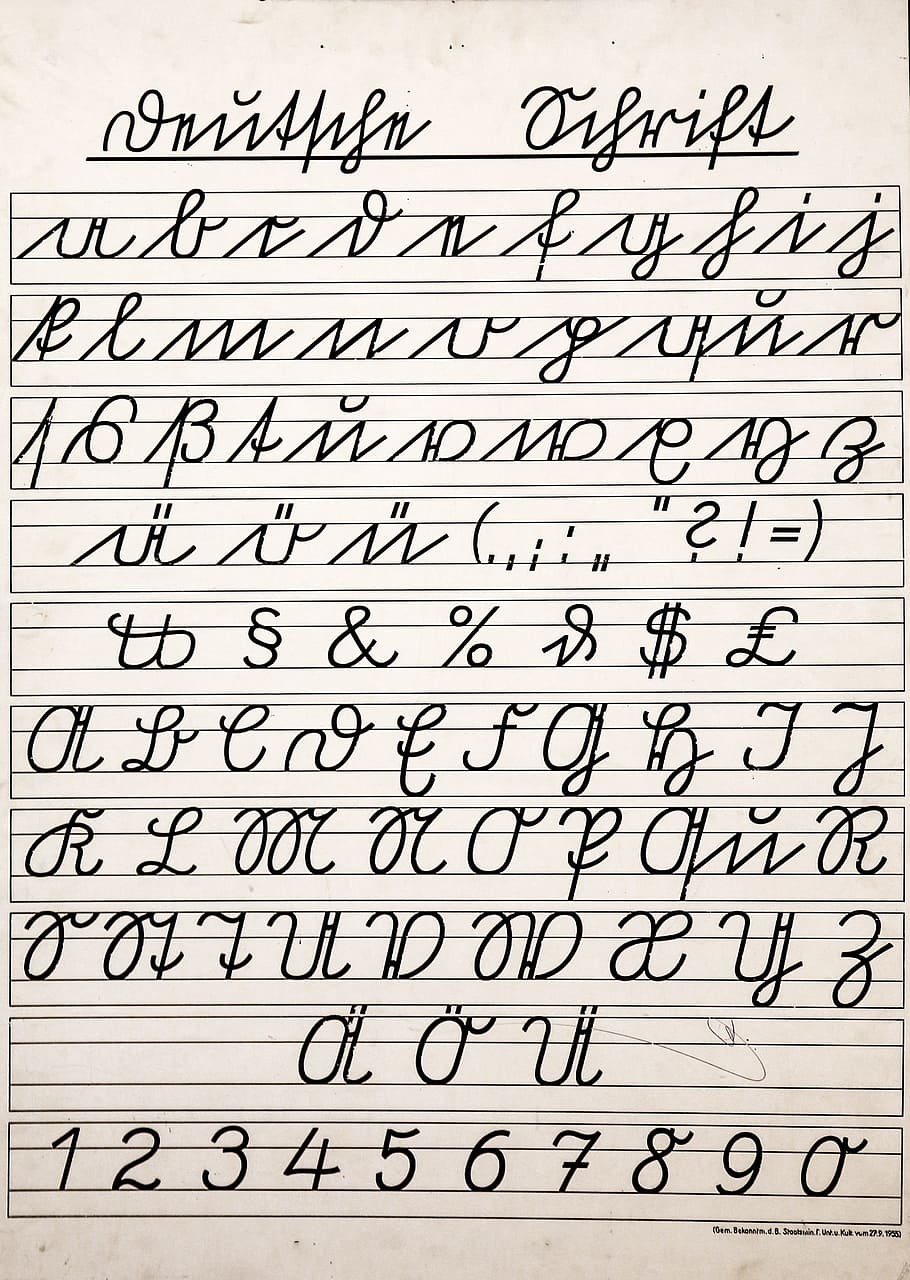 Deutsche Schrift
a b c d e f g h i j
k l m n o p qu r
ſ s ß t u v w x y z
ä ö ü (.,;:„ "?!=)
tz § & % ₰ $ £
A B C D E F G H I J
K L M N O P Qu R
S St T U V W X Y Z
Ä Ö Ü
1 2 3 4 5 6 7 8 9 0
(Gem. Bekanntm. d. B. Staatsmin. f. Unt. u. Kult. vom 27.9.1955)